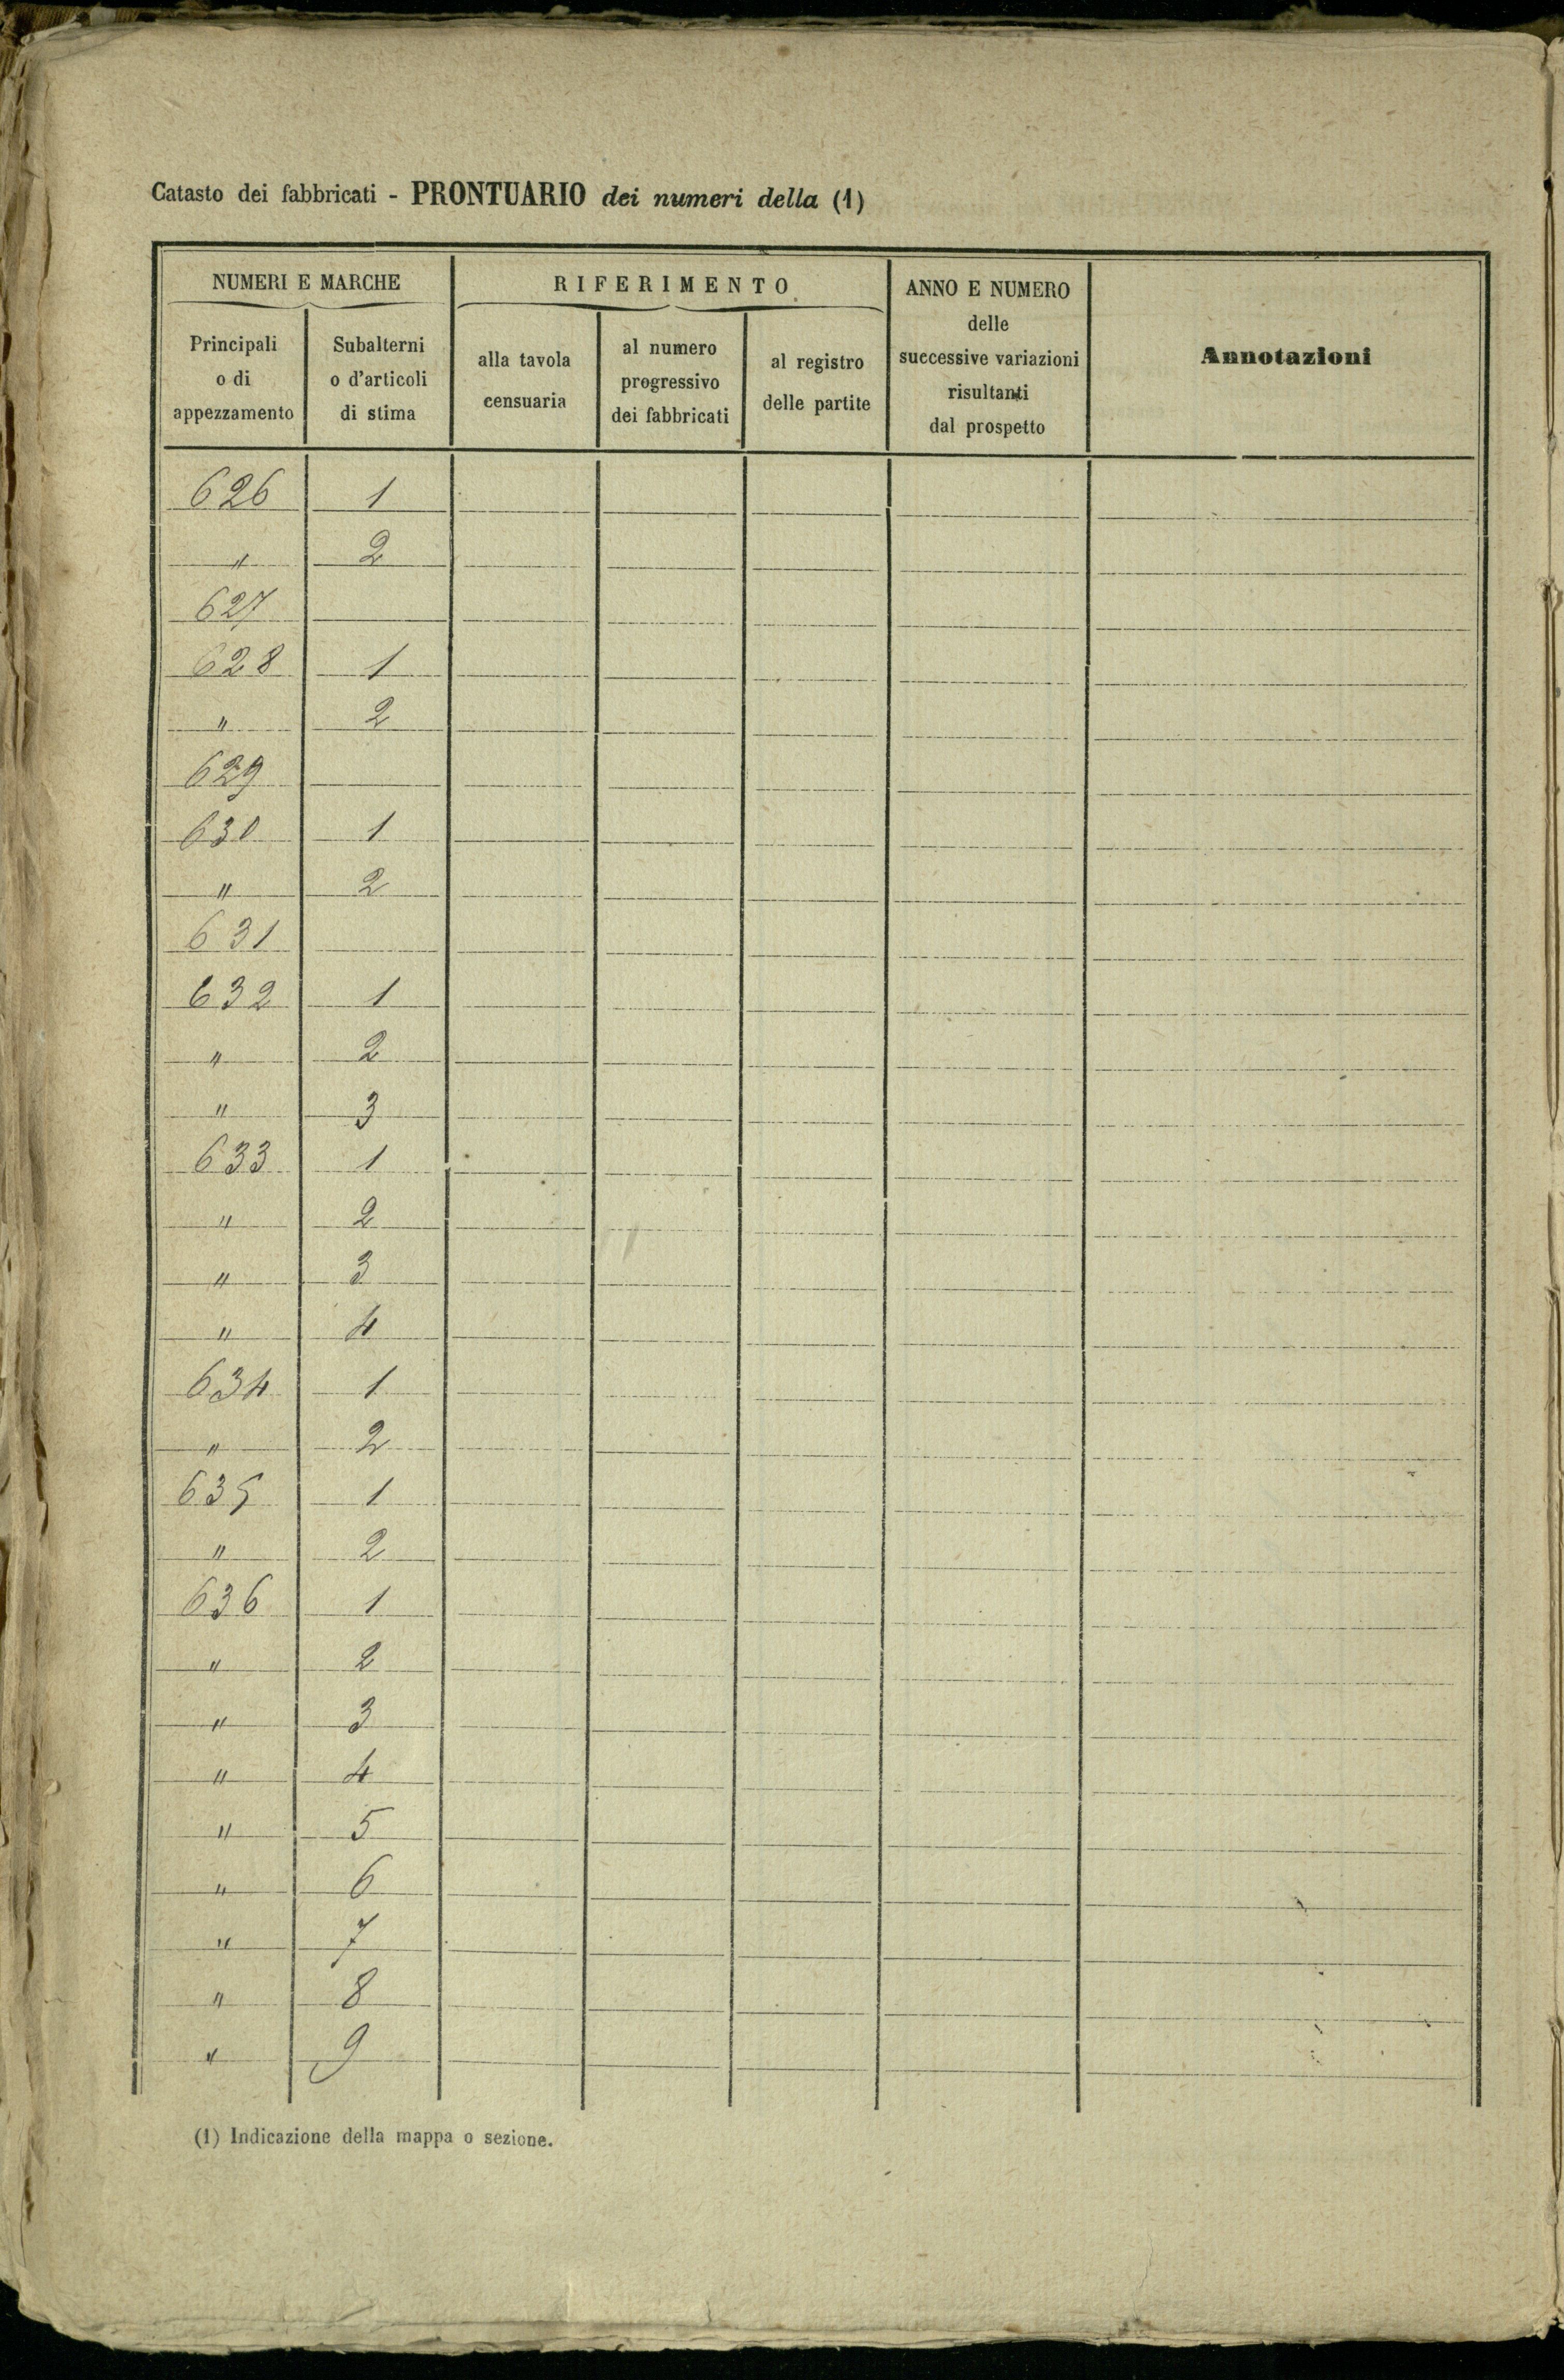 Catasto dei fabbricati - PRONTUARIO dei numeri della (1)
NUMERI E MARCHE
RIFERIMENTO
ANNO E NUMERO
delle
successive variazioni
risultanti
dal prospetto
Annotazioni
Principali
o di
appezzamento
Subalterni
o d'articoli
di stima
alla tavola
censuaria
al numero
progressivo
dei fabbricati
al registro
delle partite
626 1
" 2
627
628 1
" 2
629
630 1
" 2
631
632 1
" 2
" 3
633 1
" 2
" 3
" 4
634 1
" 2
635 1
" 2
636 1
" 2
" 3
" 4
" 5
" 6
" 7
" 8
" 9
(1) Indicazione della mappa o sezione.